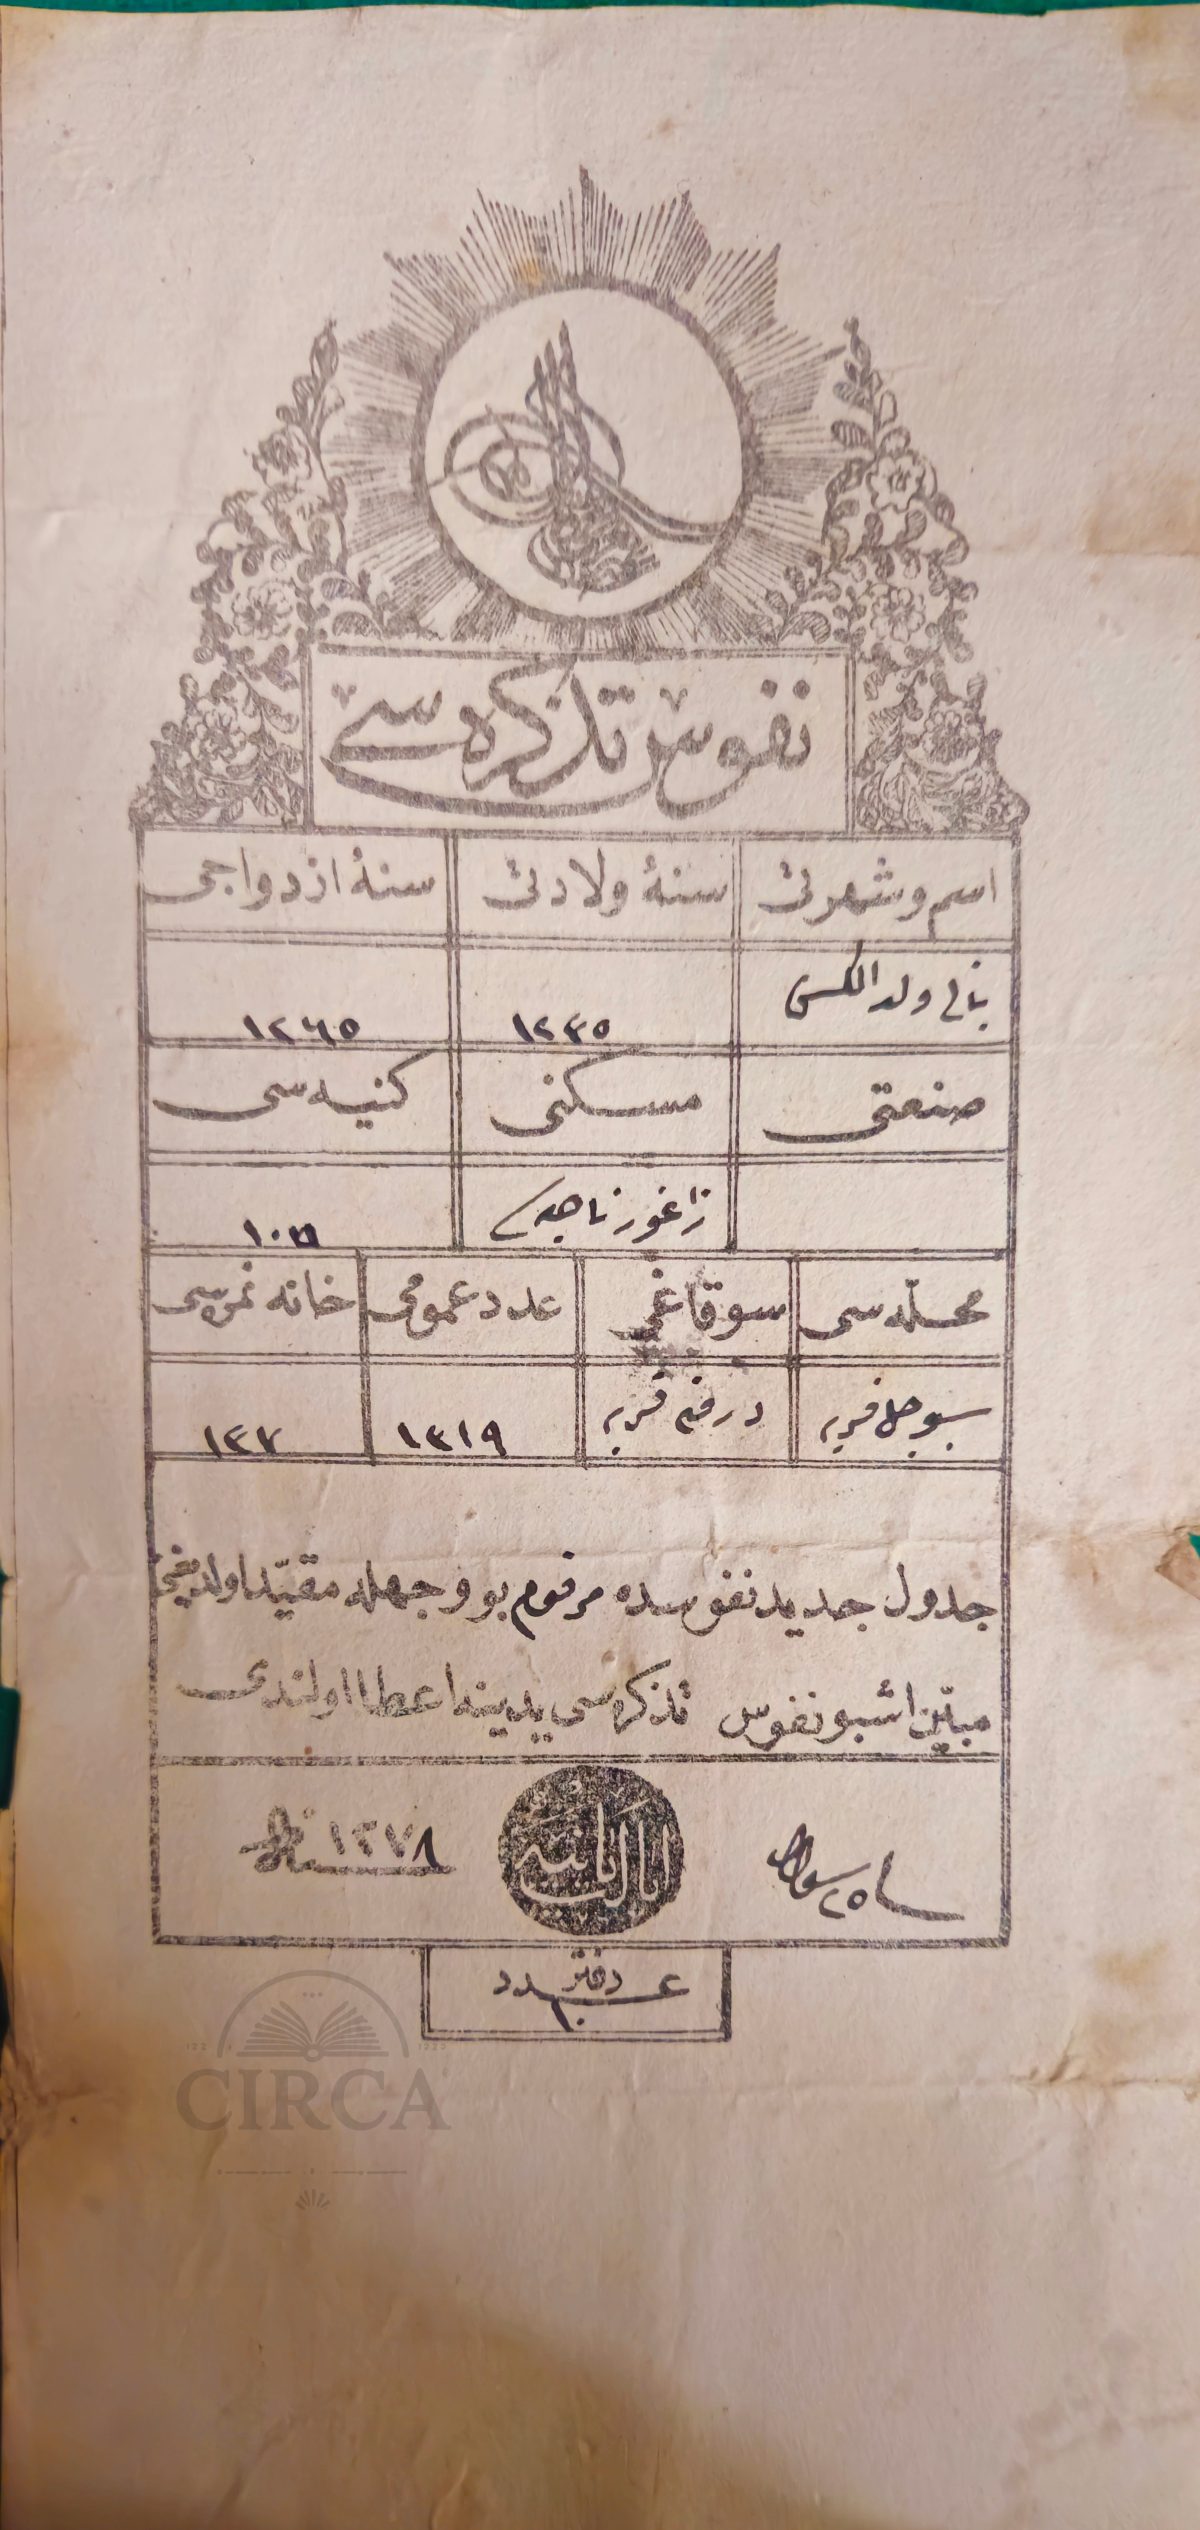 نفوس تذكره سی
اسم و شهرتی سنهٔ ولادتی سنهٔ ازدواجی
ولد ١٢٣٥ ١٢٦٥
صنعتی مسكنی كنیه سی
محله سی سوقاغی عدد عمومی خانه نمروسی
قریه قریه ١٣١٩ ١٣٧
جدول جدید نفوسده مرقوم بو وجهله مقیّد اولدیغنی
مبیّن اشبو نفوس تذكره سی یدینه اعطا اولندی
٢٥ سنه ١٢٧٨
دفتر
عدد
١٠
CIRCA